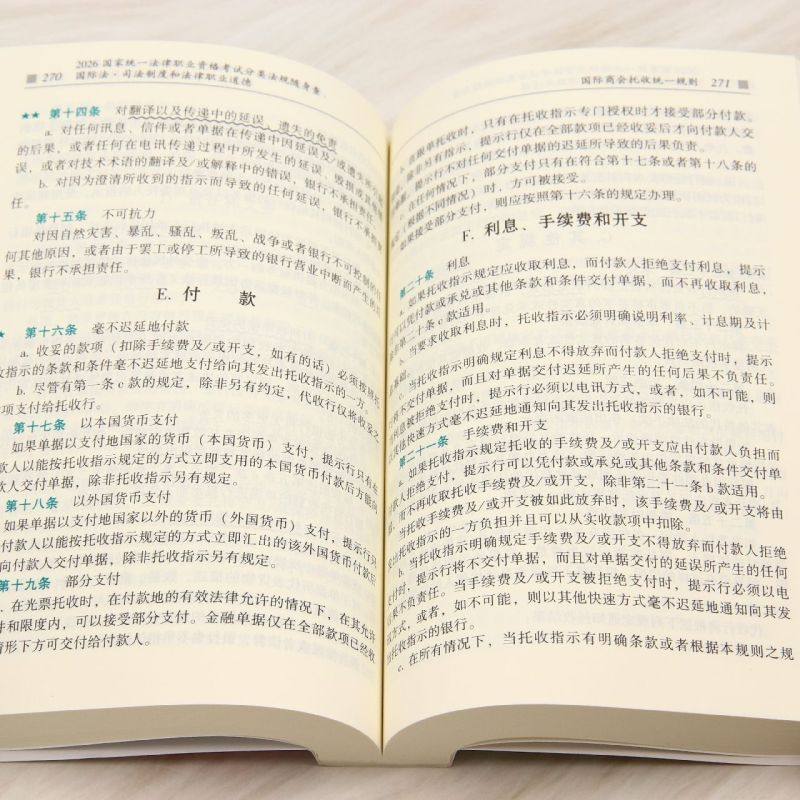 270
2026国家统一法律职业资格考试分类法规随身查
国际法·司法制度和法律职业道德
★★ 第十四条 对翻译以及传递中的延误、遗失的免责
a. 对任何讯息、信件或者单据在传递中因延误及/或遗失所
的后果，或者任何在电讯传递过程中所发生的延误、毁损或其他错
误，或者对技术术语的翻译及/或解释中的错误，银行不承担责任。
b. 对因为澄清所收到的指示而导致的任何延误，银行不承担责
任。
第十五条 不可抗力
对因自然灾害、暴乱、骚乱、叛乱、战争或者银行不可控制的任
何其他原因，或者由于罢工或停工所导致的银行营业中断而产生的后
果，银行不承担责任。
E. 付 款
★ 第十六条 毫不迟延地付款
a. 收妥的款项（扣除手续费及/或开支，如有的话）必须按照托
收指示的条款和条件毫不迟延地支付给向其发出托收指示的一方。
b. 尽管有第一条c款的规定，除非另有约定，代收行仅将收妥之
款项支付给托收行。
第十七条 以本国货币支付
如果单据以支付地国家的货币（本国货币）支付，提示行只有本
款人以能按托收指示规定的方式立即支用的本国货币付款后方能向
款人交付单据，除非托收指示另有规定。
第十八条 以外国货币支付
如果单据以支付地国家以外的货币（外国货币）支付，提示行只
付款人以能按托收指示规定的方式立即汇出的该外国货币付款后
向付款人交付单据，除非托收指示另有规定。
第十九条 部分支付
. 在光票托收时，在付款地的有效法律允许的情况下，在其允许
件和限度内，可以接受部分支付。金融单据仅在全部款项已经收
情形下方可交付给付款人。
国际商会托收统一规则 271
b. 在跟单托收时，只有在托收指示专门授权时才接受部分付款。
除非另有指示，提示行仅在全部款项已经收妥后才向付款人交
单据，提示行不对任何交付单据的迟延所导致的后果负责。
c. 在任何情况下，部分支付只有在符合第十七条或者第十八条的
（根据不同情况）时，方可被接受。
如果接受部分支付，则应按照第十六条的规定办理。
F. 利息、手续费和开支
第二十条 利息
a. 如果托收指示规定应收取利息，而付款人拒绝支付利息，提示
行可以凭付款或承兑或其他条款和条件交付单据，而不再收取利息，
除非第二十条c款适用。
当要求收取利息时，托收指示必须明确说明利率、计息期及计
基础。
c. 当托收指示明确规定利息不得放弃而付款人拒绝支付时，提示
行将不交付单据，而且对单据交付迟延所产生的任何后果不负责任。
当利息被拒绝支付时，提示行必须以电讯方式，或者，如不可能，则
以其他快速方式毫不迟延地通知向其发出托收指示的银行。
第二十一条 手续费和开支
a. 如果托收指示规定托收的手续费及/或开支应由付款人负担而
付款人拒绝支付，提示行可以凭付款或承兑或其他条款和条件交付单
据，而不再收取托收手续费及/或开支，除非第二十一条b款适用。
当托收手续费及/或开支被如此放弃时，该手续费及/或开支将由
发出托收指示的一方负担并且可以从实收款项中扣除。
b. 当托收指示明确规定手续费及/或开支不得放弃而付款人拒绝
支付时，提示行将不交付单据，而且对单据交付的延误所产生的任何
后果不负责任。当手续费及/或开支被拒绝支付时，提示行必须以电
讯方式，或者，如不可能，则以其他快速方式毫不迟延地通知向其发
出托收指示的银行。
c. 在所有情况下，当托收指示有明确条款或者根据本规则之规